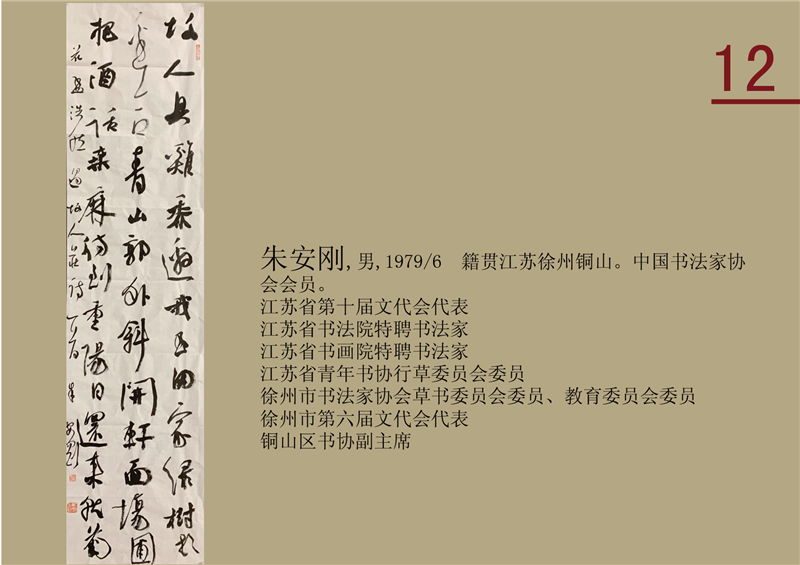 故人具雞黍邀我至田家緑樹村
邊合青山郭外斜開軒面場圃
把酒話桒麻待到重陽日還来就菊
花孟浩然過故人莊詩一首 朱安剛
12
朱安刚,男,1979/6 籍贯江苏徐州铜山。中国书法家协
会会员。
江苏省第十届文代会代表
江苏省书法院特聘书法家
江苏省书画院特聘书法家
江苏省青年书协行草委员会委员
徐州市书法家协会草书委员会委员、教育委员会委员
徐州市第六届文代会代表
铜山区书协副主席